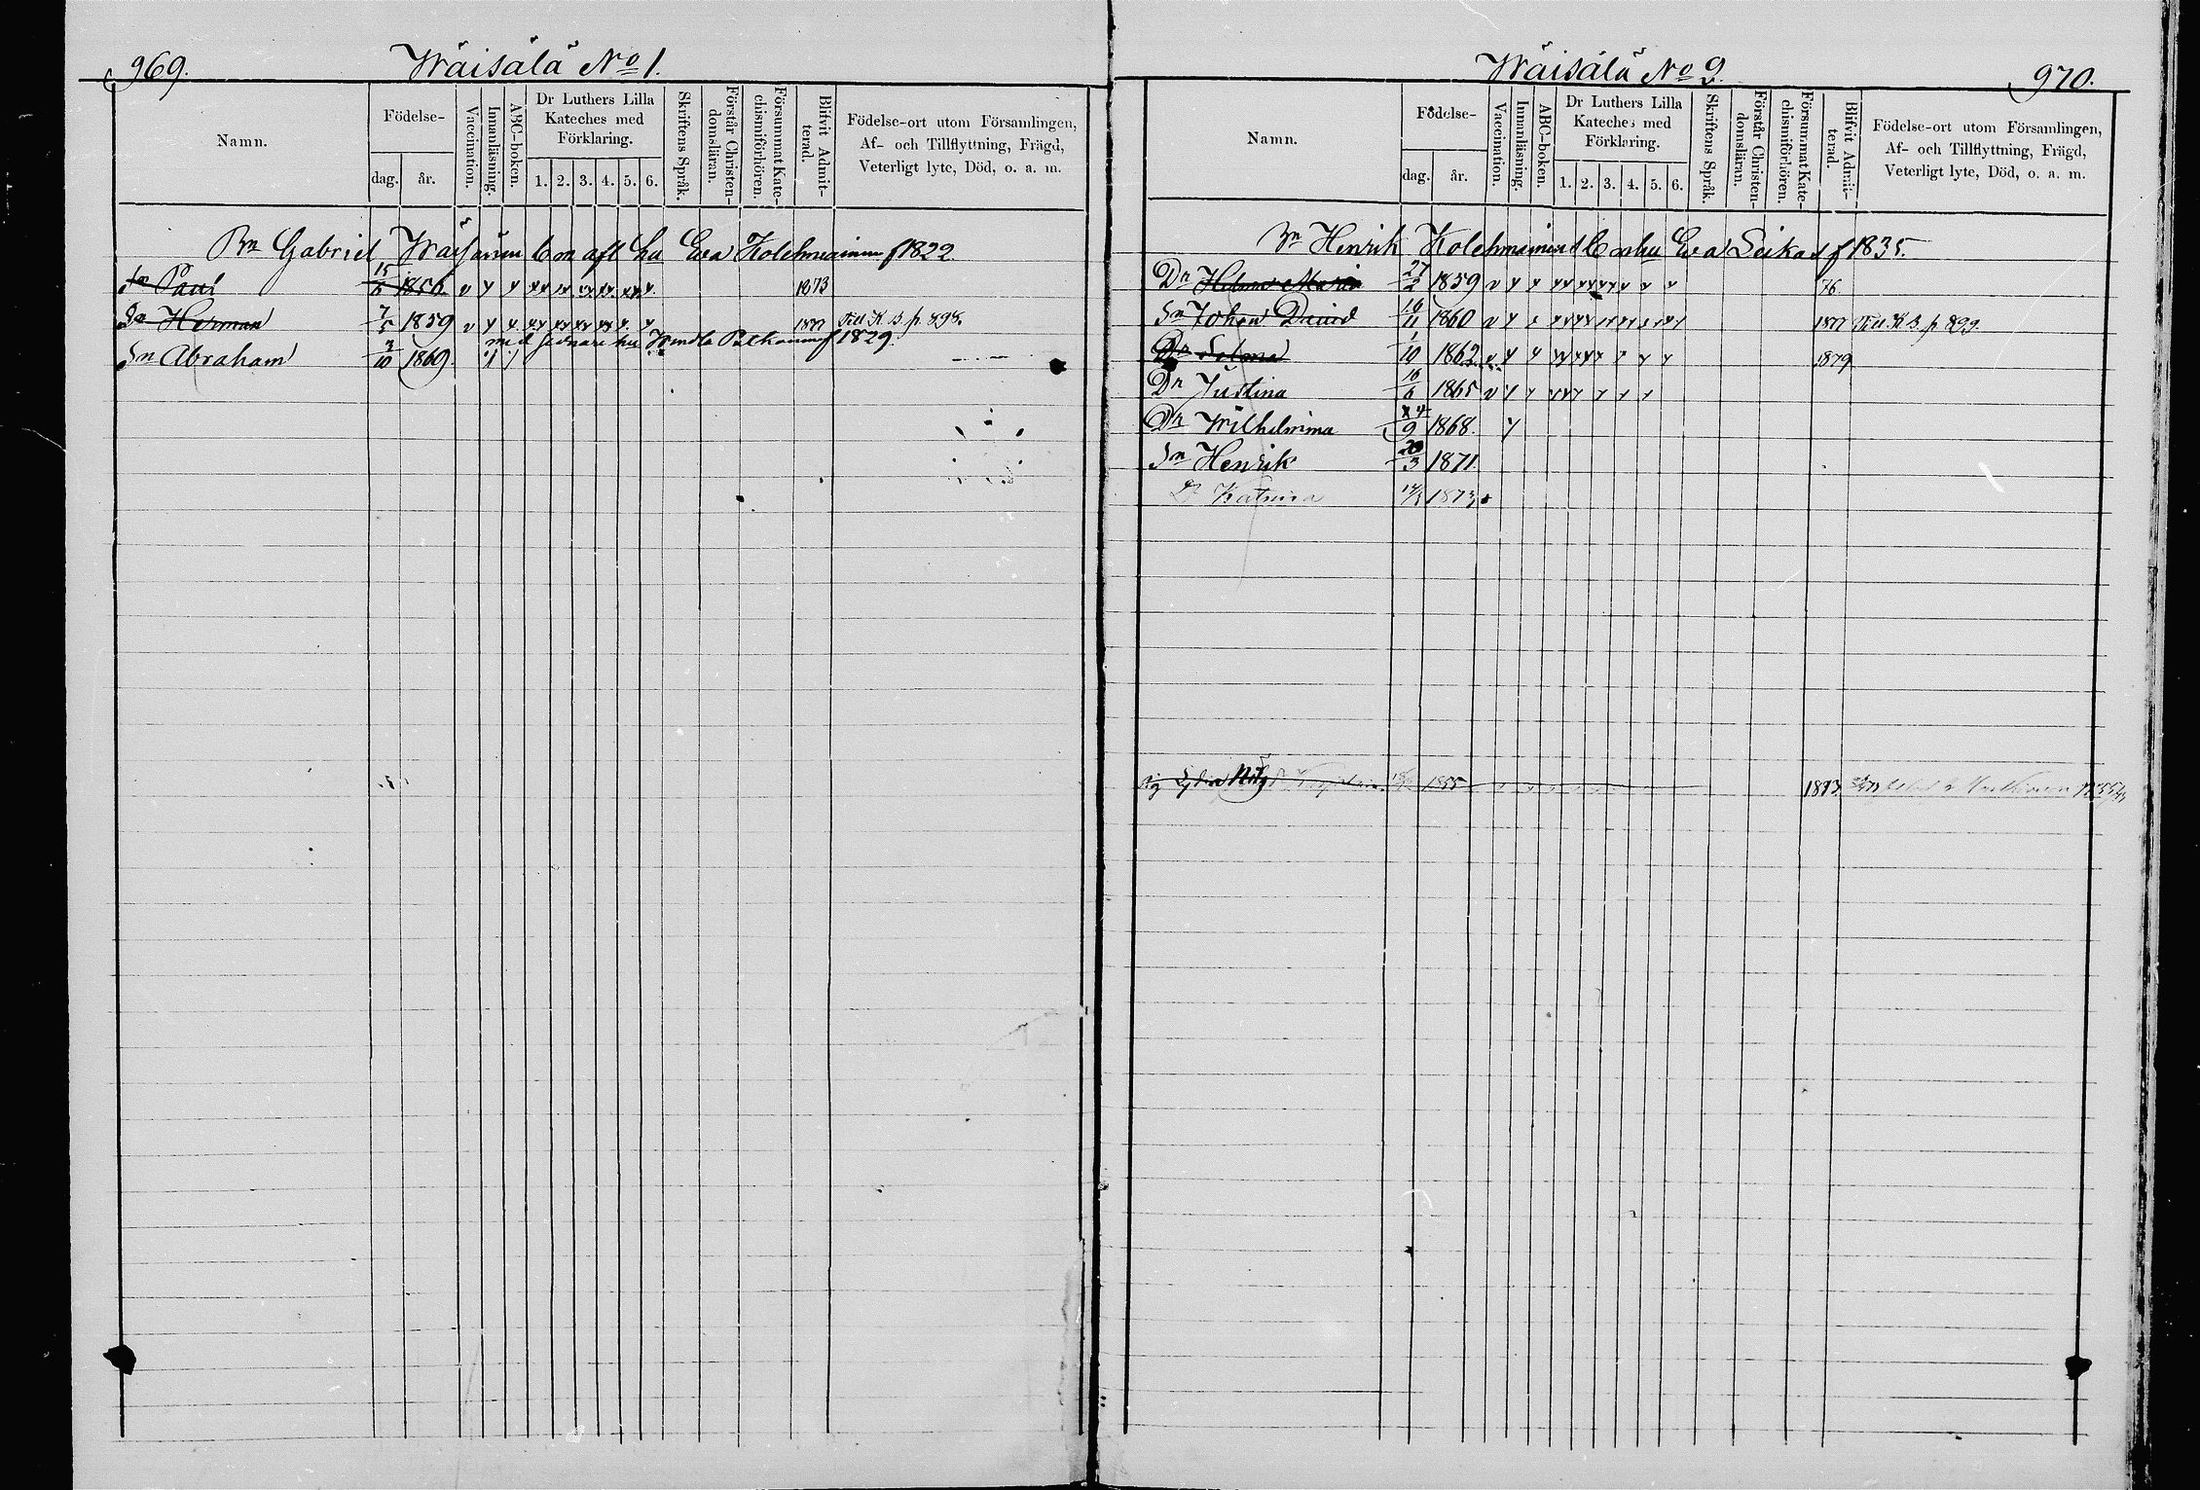 969. Wäisälä No 1.
Namn. Födelse- dag. år. Vaccination. Innanläsning. ABC-boken. Dr Luthers Lilla Kateches med Förklaring. 1. 2. 3. 4. 5. 6. Skriftens Språk. Förstår Christendomsläran. Försummat Katechismiförhören. Blifvit Admitterad. Födelse-ort utom Församlingen, Af- och Tillflyttning, Frägd, Veterligt lyte, Död, o. a. m.
Bn Gabriel Wäisänen bn m afl hu Eva Kolehmainen f 1822.
Sn Paul 15/6 1856 v 1873
Sn Herman 7/5 1859 v 1877 Till K B p. 898.
med sednare hu f 1829.
Sn Abraham 3/10 1869.
Wäisälä No 2. 970.
Namn. Födelse- dag. år. Vaccination. Innanläsning. ABC-boken. Dr Luthers Lilla Kateches med Förklaring. 1. 2. 3. 4. 5. 6. Skriftens Språk. Förstår Christendomsläran. Försummat Katechismiförhören. Blifvit Admitterad. Födelse-ort utom Församlingen, Af- och Tillflyttning, Frägd, Veterligt lyte, Död, o. a. m.
Bn Henrik Kolehmainens bn m hu Eva Leikas f 1835.
Dr Maria 27/2 1859 v 76
Sn Johan David 16/11 1860 v 1877 Till K B p 899.
Dr Selma 1/10 1862 v 1879
Dr Justina 16/6 1865 v
Dr Wilhelmina 24/9 1868.
Sn Henrik 20/3 1871.
Dr Katrina 1873
Lydia 1855 1873